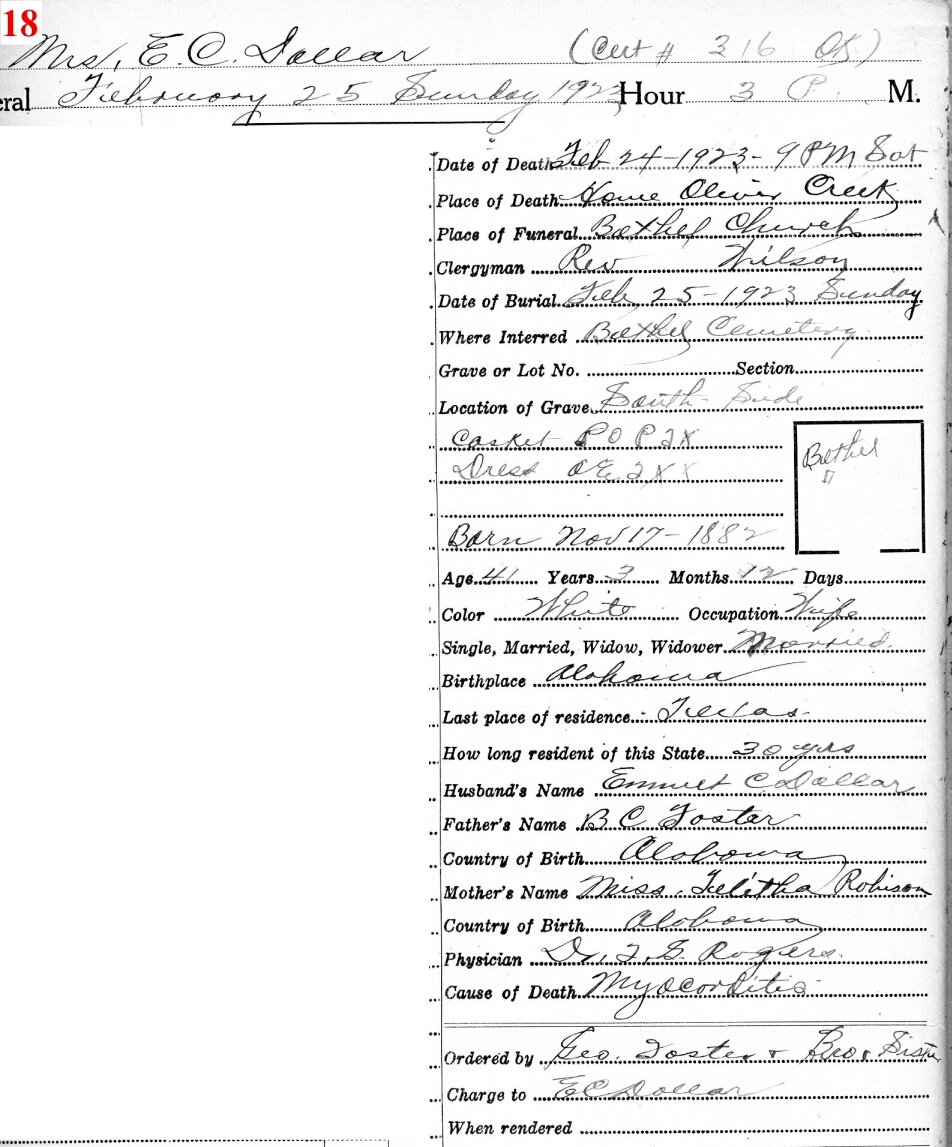 18
Mrs, E. C. Dollar (Cert # 316 OK)
eral February 25 Sunday 1923 Hour 3 P. M.
Date of Death Feb 24-1923-9 PM Sat
Place of Death Home Oliver Creek
Place of Funeral Bethel Church
Clergyman Rev Wilson
Date of Burial Feb 25-1923 Sunday
Where Interred Bethel Cemetery
Grave or Lot No. Section
Location of Grave South Side
Casket P O P 2X
Dress OE 2XX
Bethel
Born Nov 17-1882
Age 41 Years 3 Months 12 Days
Color White Occupation Wife
Single, Married, Widow, Widower Married
Birthplace Alabama
Last place of residence Texas
How long resident of this State 30 yrs
Husband's Name Emmet C. Dollar
Father's Name B C Foster
Country of Birth Alabama
Mother's Name Miss. Telitha Robison
Country of Birth Alabama
Physician Dr. Rogers
Cause of Death Myocorditis
Ordered by Geo. Foster & Bro & Sister
Charge to E C Dollar
When rendered